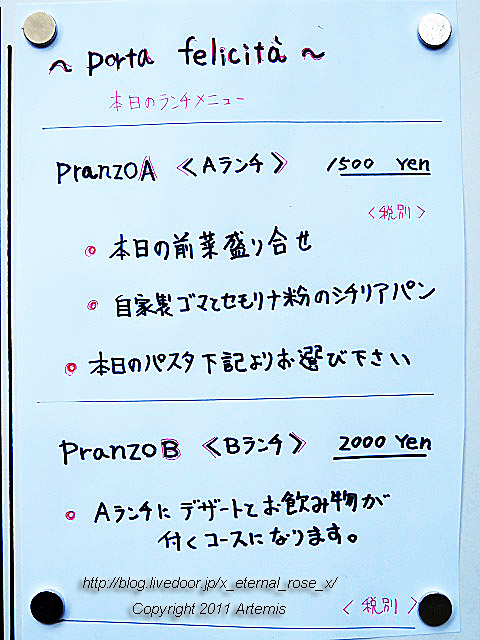 ～ porta felicità ～
本日のランチメニュー
PranzoA 〈Aランチ〉 1500 Yen
〈税別〉
・本日の前菜盛り合せ
・自家製ゴマとセモリナ粉のシチリアパン
・本日のパスタ下記よりお選び下さい
PranzoB 〈Bランチ〉 2000 Yen
・Aランチに デザートとお飲み物が
付くコースになります。
http://blog.livedoor.jp/x_eternal_rose_x/
Copyright 2011 Artemis
〈税別〉